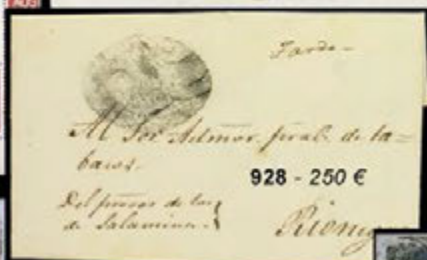 Tarde-
Al Sor Admor. pral. de ta=
bacos.
928 - 250 €
Del de los
de Salamina.
Rioneg